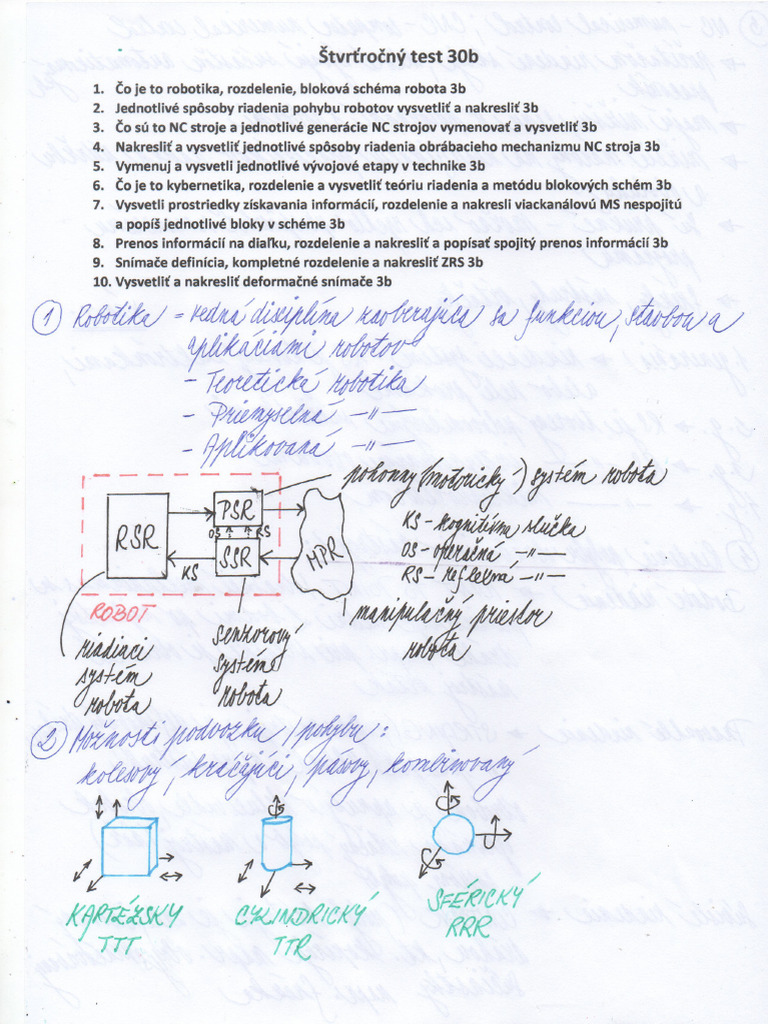 Štvrťročný test 30b
1. Čo je to robotika, rozdelenie, bloková schéma robota 3b
2. Jednotlivé spôsoby riadenia pohybu robotov vysvetliť a nakresliť 3b
3. Čo sú to NC stroje a jednotlivé generácie NC strojov vymenovať a vysvetliť 3b
4. Nakresliť a vysvetliť jednotlivé spôsoby riadenia obrábacieho mechanizmu NC stroja 3b
5. Vymenuj a vysvetli jednotlivé vývojové etapy v technike 3b
6. Čo je to kybernetika, rozdelenie a vysvetliť teóriu riadenia a metódu blokových schém 3b
7. Vysvetli prostriedky získavania informácií, rozdelenie a nakresli viackanálovú MS nespojitú
a popíš jednotlivé bloky v schéme 3b
8. Prenos informácií na diaľku, rozdelenie a nakresliť a popísať spojitý prenos informácií 3b
9. Snímače definícia, kompletné rozdelenie a nakresliť ZRS 3b
10. Vysvetliť a nakresliť deformačné snímače 3b
1 Robotika = vedná disciplína zaoberajúca sa funkciou, stavbou a
aplikáciami robotov
- Teoretická robotika
- Priemyselná -〃-
- Aplikovaná -〃-
pohonný (motorický) systém robota
RSR
PSR
OS RS
SSR
KS
MPR
KS - kognitívna slučka
OS - operačná -〃-
RS - reflexná -〃-
ROBOT
riadiaci
systém
robota
senzorový
systém
robota
manipulačný priestor
robota
2 Možnosti podvozku / pohybu:
kolesový, kráčajúci, pásový, kombinovaný
KARTÉZSKY
TTT
CYLINDRICKÝ
TTR
SFÉRICKÝ
RRR